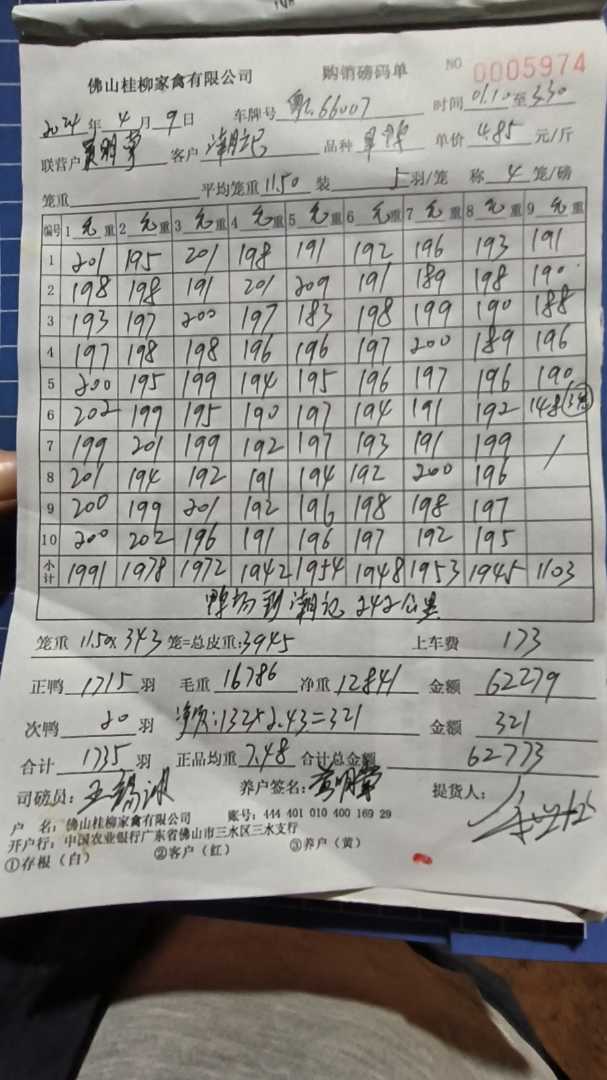 佛山桂柳家禽有限公司 购销磅码单 NO 0005974
2024年4月9日 车牌号 粤L66007 时间 01.10至3.30
联营户 黄明掌 客户 潮记 品种 单价 4.85 元/斤
笼重 平均笼重 11.50 装 5 羽/笼 称 4 笼/磅
编号 1 毛重 2 毛重 3 毛重 4 毛重 5 毛重 6 毛重 7 毛重 8 毛重 9 毛重
1 201 195 201 198 191 192 196 193 191
2 198 198 191 201 209 191 189 198 190
3 193 197 200 197 183 198 199 190 188
4 197 198 198 196 196 197 200 189 196
5 200 195 199 194 195 196 197 196 190
6 202 199 195 190 197 194 191 192 148
7 199 201 199 192 197 193 191 199 /
8 201 194 192 191 194 192 200 196
9 200 199 201 192 196 198 198 197
10 200 202 196 191 196 197 192 195
小计 1991 1978 1972 1942 1954 1948 1953 1945 1103
鸭场到潮记 242公里
笼重 11.50×343 笼=总皮重:3945 上车费 173
正鸭 1715 羽 毛重 16786 净重 12841 金额 62279
次鸭 20 羽 净次:132×2.43=321 金额 321
合计 1735 羽 正品均重 7.48 合计总金额 62773
司磅员: 王锡 养户签名: 黄明掌 提货人:
户 名: 佛山桂柳家禽有限公司 账号: 444 401 010 400 169 29
开户行: 中国农业银行广东省佛山市三水区三水支行
①存根(白) ②客户(红) ③养户(黄)